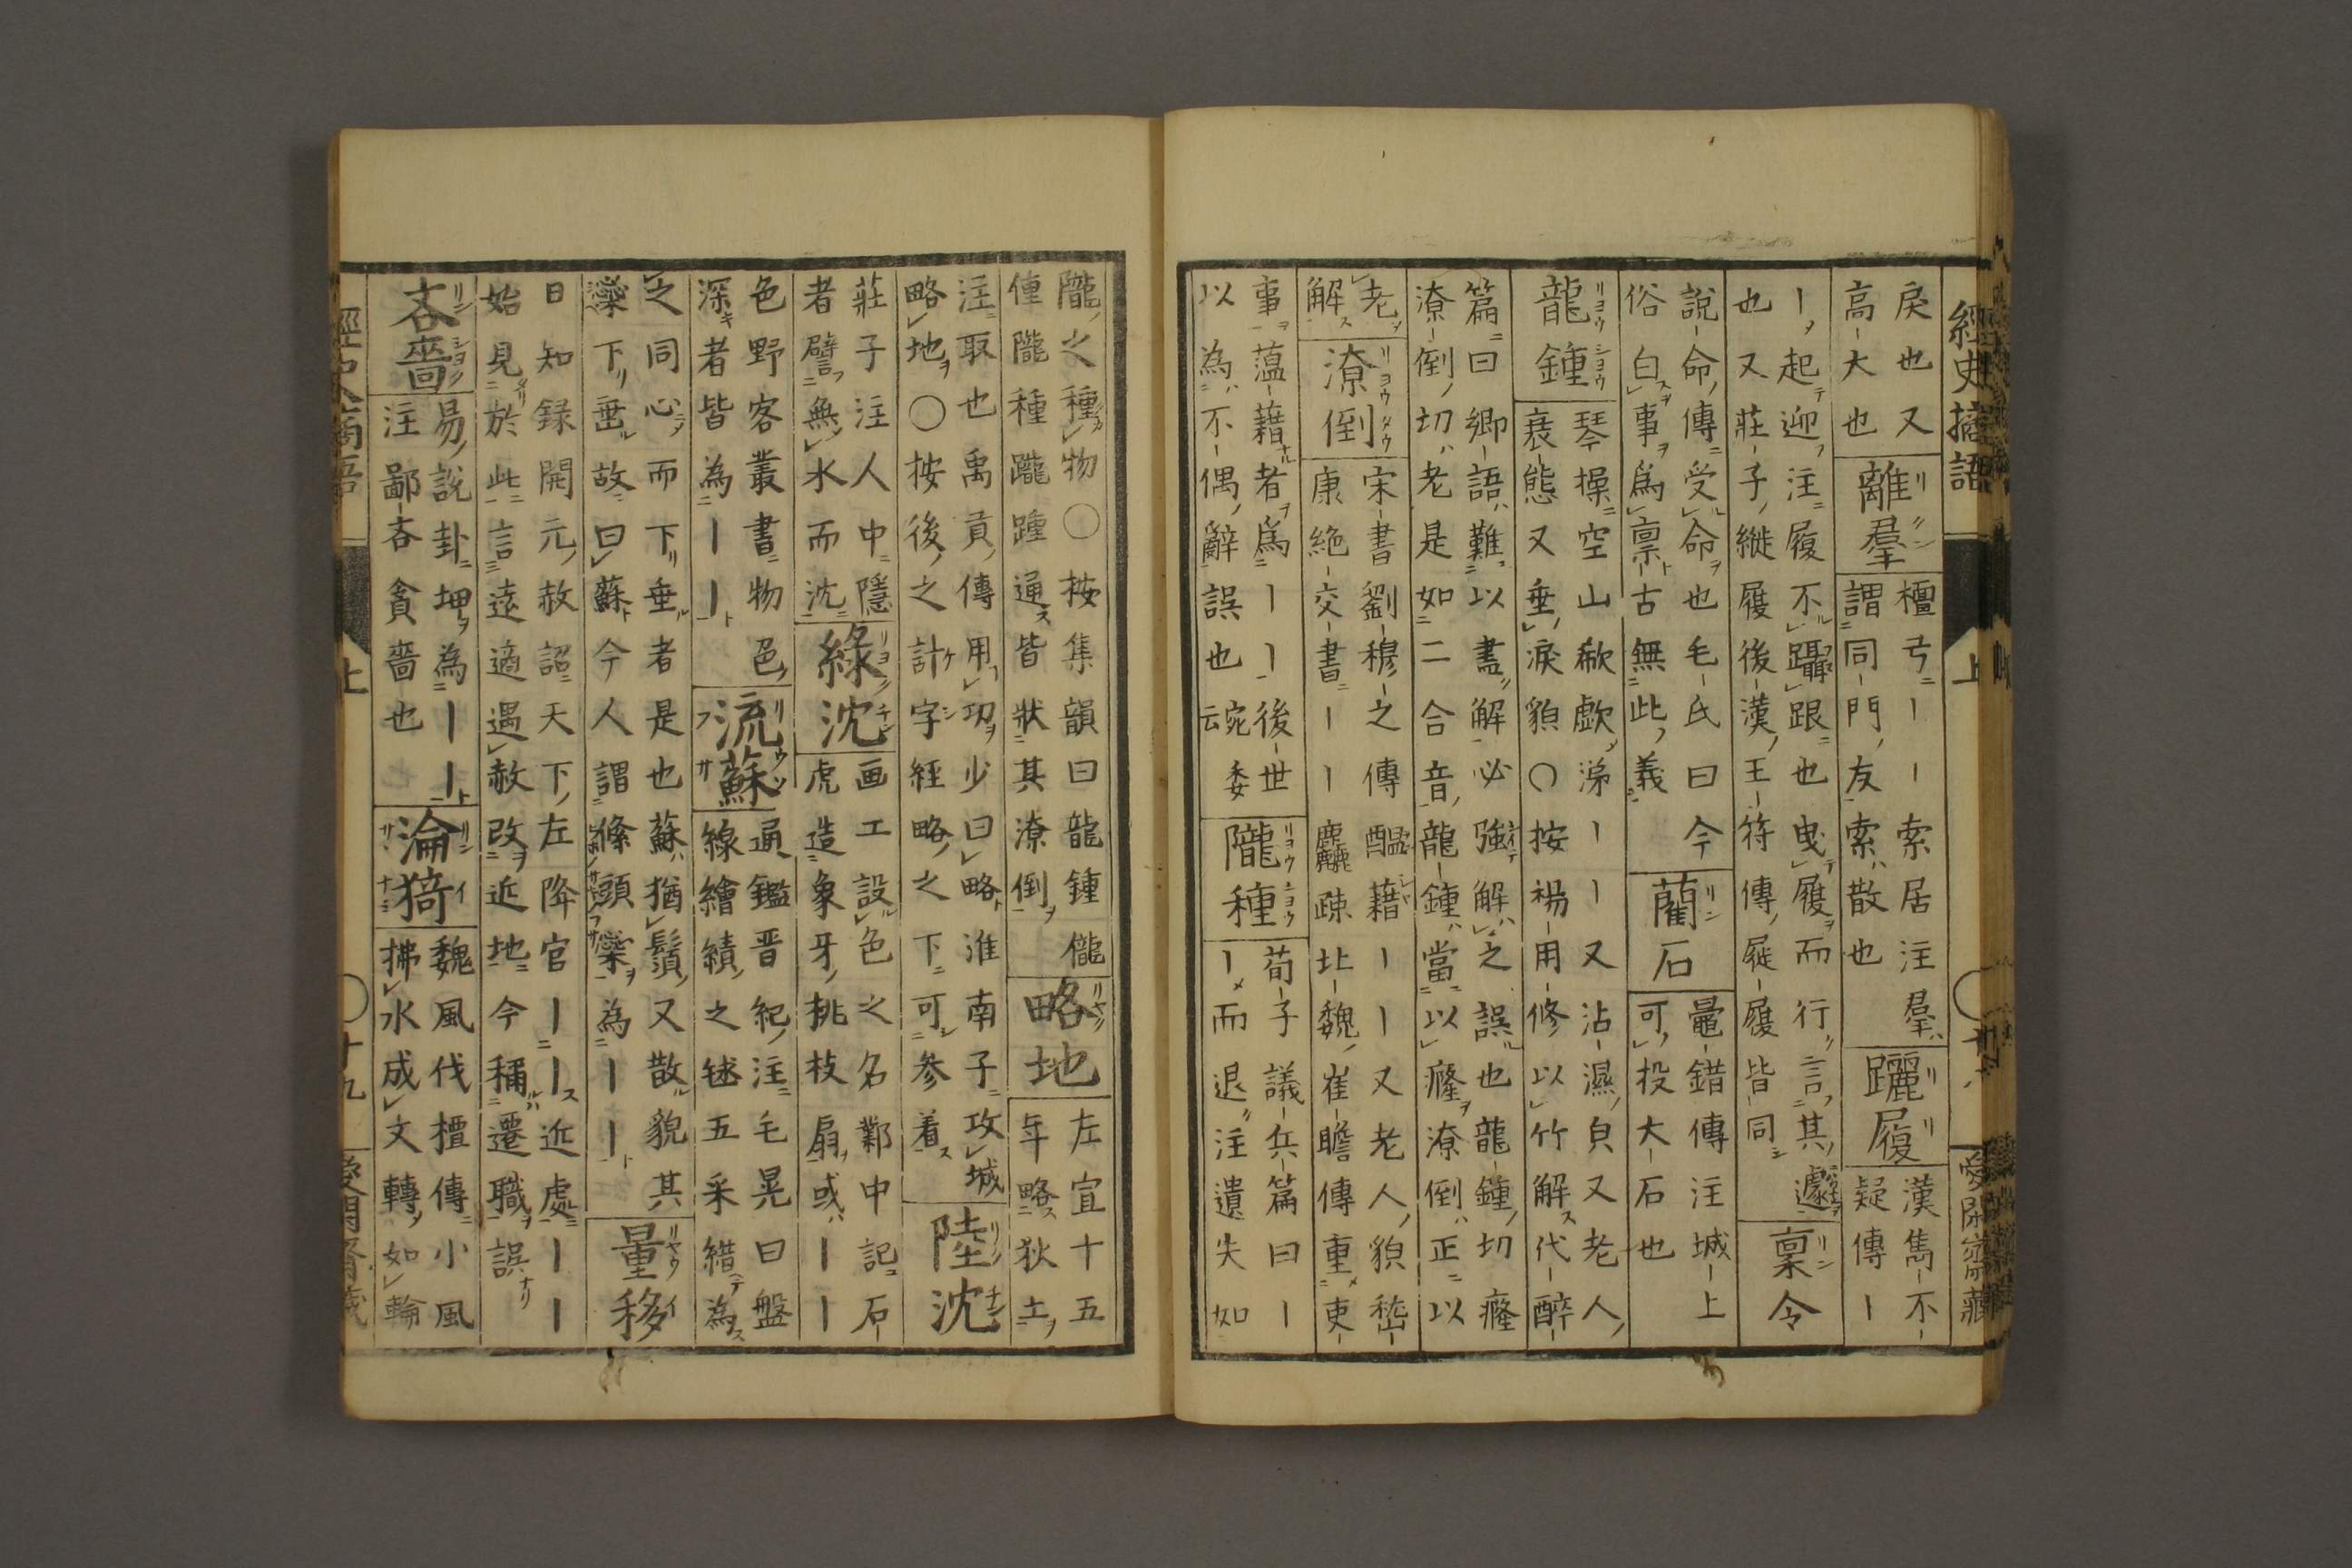 經史摘語
上
愛閑齋藏
戾也又
高大也
離羣
檀弓ーー索居注羣
謂同門友索散也
躧履
漢雋不
疑傳ー
ー起迎注履不躡跟也曳履而行言其遽
也又莊子縰履後漢王符傳屣履皆同
稟令
說命傳受命也毛氏曰今
俗白事爲禀古無此義
藺石
鼂錯傳注城上
可投大石也
龍鍾
琴操空山歔欷涕ーー又沾濕皃又老人
衰態又垂淚貌〇按楊用修以竹解代醉
篇曰鄉語難以盡解必強解之誤也龍鍾切癃
潦倒切老是如二合音龍鍾當以癃潦倒正以
老
解
潦倒
宋書劉穆之傳醞藉ーー又老人貌嵇
康絶交書ーー麤疎北魏崔瞻傳重吏
事薀藉者爲ーー後世
以為不偶辭誤也
隴種
荀子議兵篇曰ー
ー而退注遺失如
隴之種物〇按集韻曰龍鍾儱
偅隴種躘踵通皆狀其潦倒
略地
左宣十五
年略狄土
注取也禹貢傳用功少曰略淮南子攻城
略地〇按後之計字経略之下可参着
陸沈
莊子注人中隱
者譬無水而沈
綠沈
画工設色之名鄴中記石
虎造象牙桃枝扇或ーー
色野客叢書物色
深者皆為ーー
流蘇
通鑑晋紀注毛晃曰盤
線繪績之毬五采緇為
之同心而下垂者是也蘇猶鬚又散貌其
下垂故曰蘇今人謂絛頭為ーー
量移
日知録開元赦詔天下左降官ーー近處ーー
始見於此言遠適遇赦改近地今稱遷職誤
吝嗇
易說卦坤為ーー
注鄙吝貪嗇也
淪猗
魏風伐檀傳小風
拂水成文轉如輪
經史摘語
上
十九
愛閑齋藏